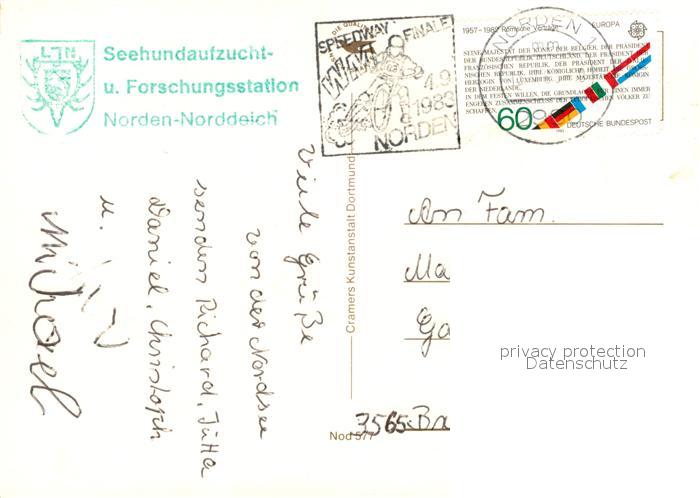 LJN
Seehundaufzucht-
u. Forschungsstation
Norden-Norddeich
SPEEDWAY
FINALE
WM
4.9.
1983
NORDEN
NORDEN 1
1957-1982 Römische Verträge EUROPA
SEINE MAJESTÄT DER KÖNIG DER BELGIER, DER PRÄSIDENT
DER BUNDESREPUBLIK DEUTSCHLAND, DER PRÄSIDENT DER
FRANZÖSISCHEN REPUBLIK, DER PRÄSIDENT DER ITALIE-
NISCHEN REPUBLIK, IHRE KÖNIGLICHE HOHEIT DIE GROSS-
HERZOGIN VON LUXEMBURG, IHRE MAJESTÄT DIE KÖNIGIN
DER NIEDERLANDE,
IN DEM FESTEN WILLEN, DIE GRUNDLAGEN FÜR EINEN IMMER
ENGEREN ZUSAMMENSCHLUSS DER EUROPÄISCHEN VÖLKER ZU
SCHAFFEN
60
DEUTSCHE BUNDESPOST
Viele Grüße
von der Nordsee
senden Richard, Jutta
Daniel, Christoph
u.
Michael
Cramers Kunstanstalt Dortmund
Nod 577
An Fam.
Ma
Ga
3565 Br
privacy protection
Datenschutz